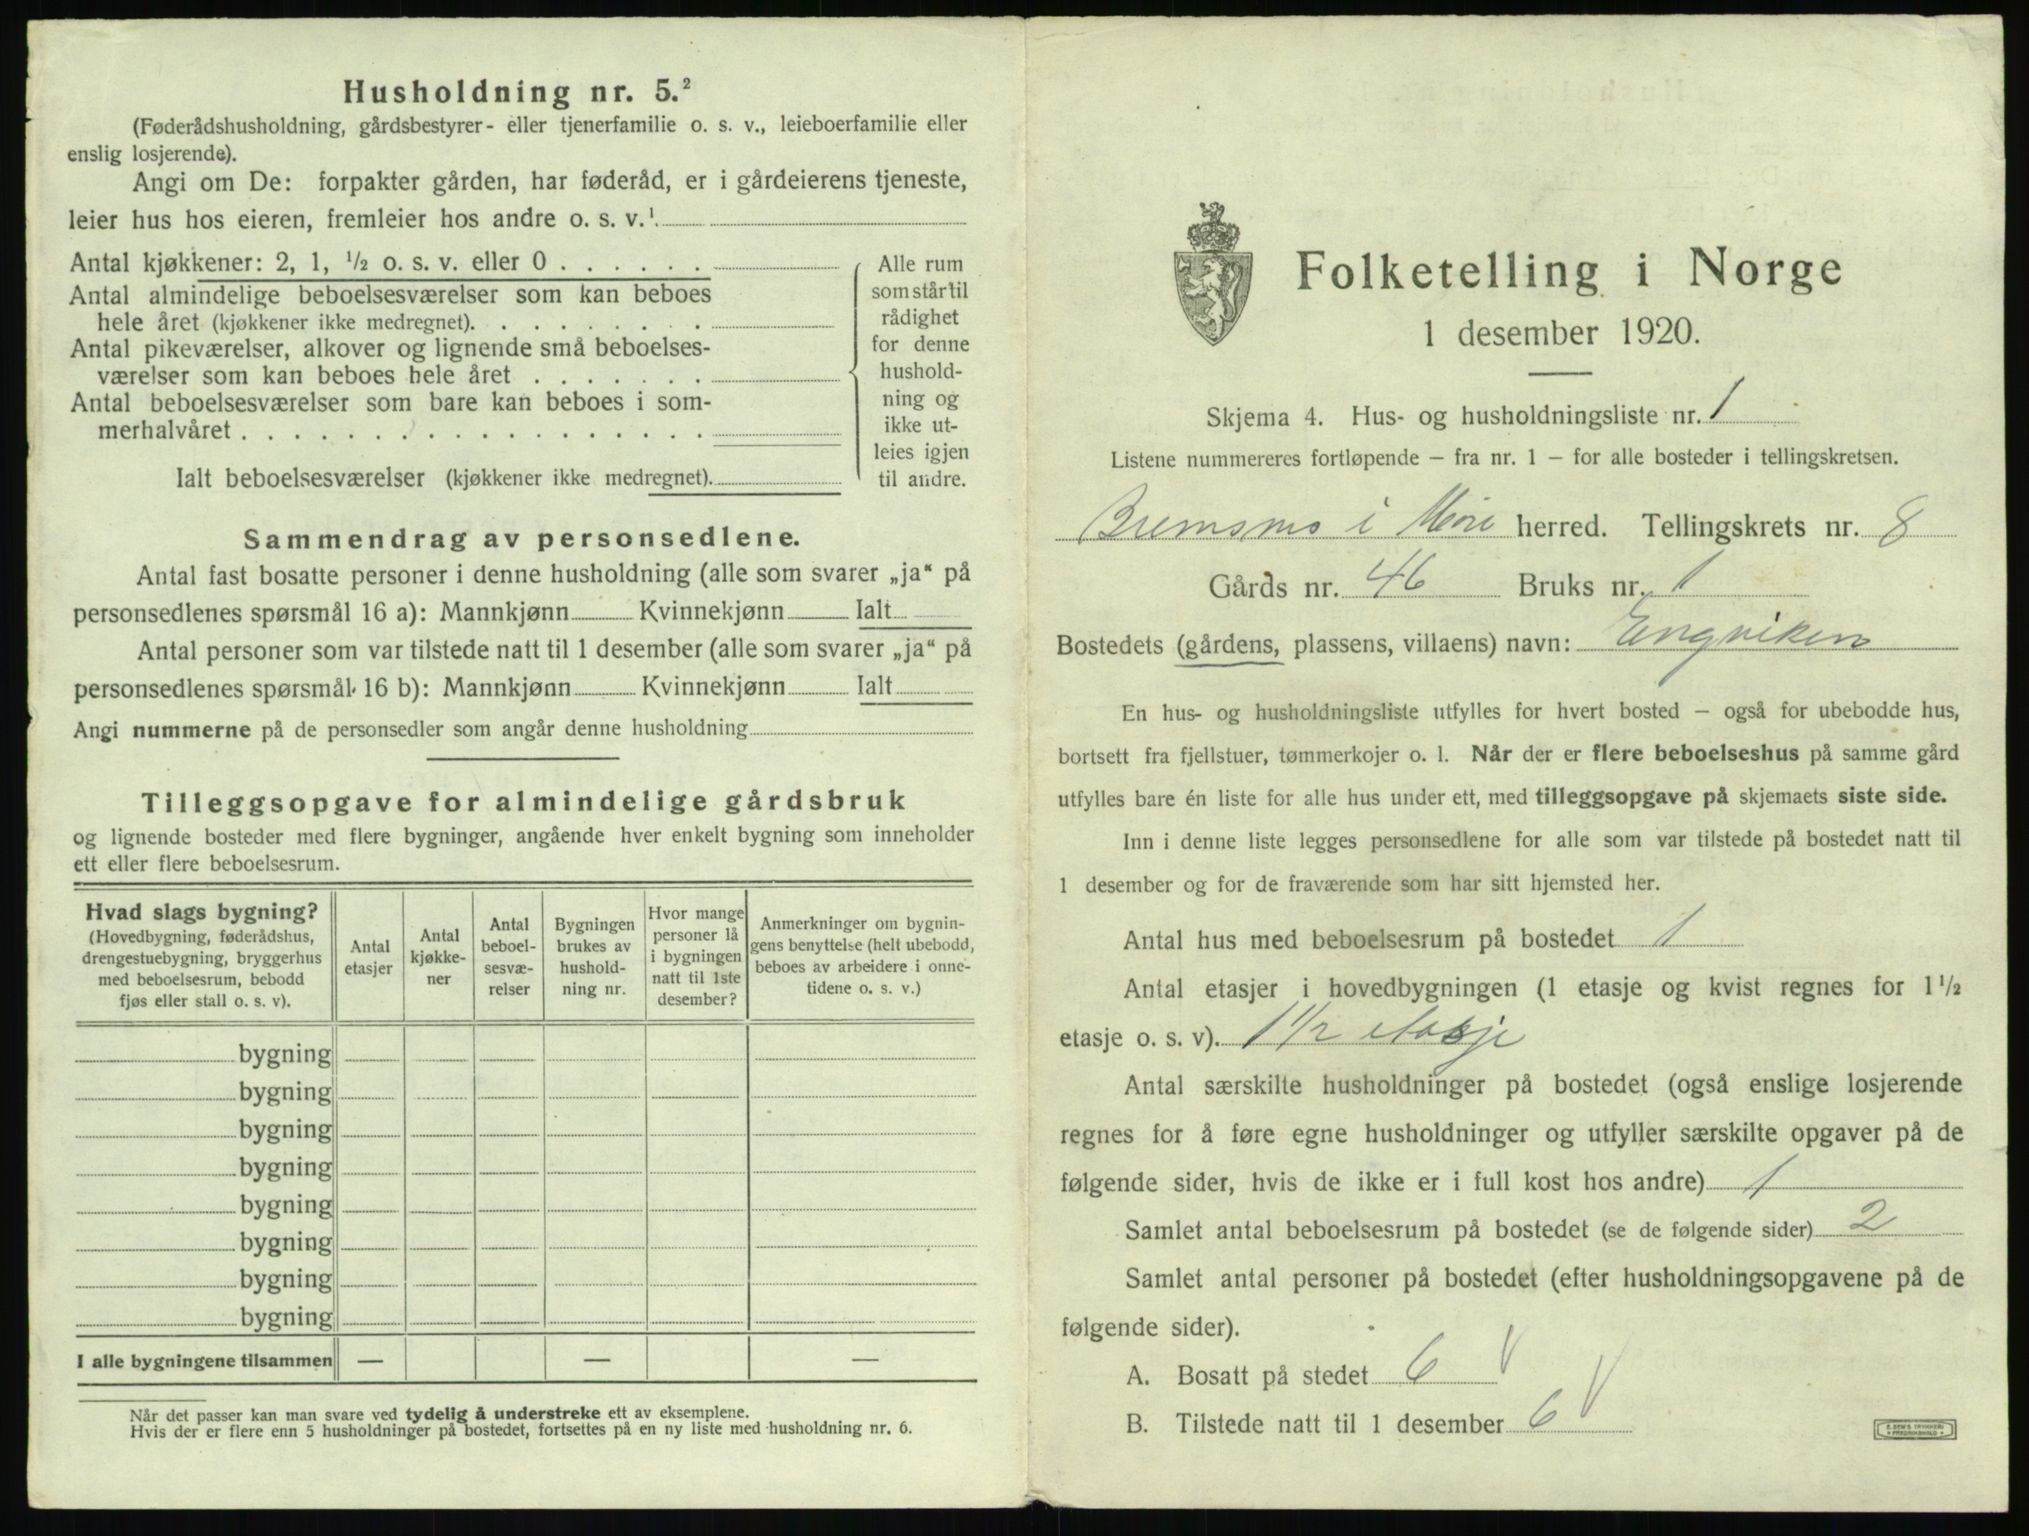 Husholdning nr. 5.²
(Føderådshusholdning, gårdsbestyrer- eller tjenerfamilie o. s. v., leieboerfamilie eller
enslig losjerende).
Angi om De: forpakter gården, har føderåd, er i gårdeierens tjeneste,
leier hus hos eieren, fremleier hos andre o. s. v.¹
Antal kjøkkener: 2, 1, ½ o. s. v. eller 0 . . . . . .
Antal almindelige beboelsesværelser som kan beboes
hele året (kjøkkener ikke medregnet). . . . . . . . .
Antal pikeværelser, alkover og lignende små beboelses-
værelser som kan beboes hele året . . . . . . .
Antal beboelsesværelser som bare kan beboes i som-
merhalvåret . . . . . . . . . . . . . . . . . .
Ialt beboelsesværelser (kjøkkener ikke medregnet).
Alle rum
som står til
rådighet
for denne
hushold-
ning og
ikke ut-
leies igjen
til andre.
Sammendrag av personsedlene.
Antal fast bosatte personer i denne husholdning (alle som svarer „ja“ på
personsedlenes spørsmål 16 a): Mannkjønn Kvinnekjønn Ialt
Antal personer som var tilstede natt til 1 desember (alle som svarer „ja“ på
personsedlenes spørsmål 16 b): Mannkjønn Kvinnekjønn Ialt
Angi nummerne på de personsedler som angår denne husholdning
Tilleggsopgave for almindelige gårdsbruk
og lignende bosteder med flere bygninger, angående hver enkelt bygning som inneholder
ett eller flere beboelsesrum.
Hvad slags bygning?
(Hovedbygning, føderådshus,
drengestuebygning, bryggerhus
med beboelsesrum, bebodd
fjøs eller stall o. s. v).
Antal
etasjer
Antal
kjøkke-
ner
Antal
beboel-
sesvæ-
relser
Bygningen
brukes av
hushold-
ning nr.
Hvor mange
personer lå
i bygningen
natt til 1ste
desember?
Anmerkninger om bygnin-
gens benyttelse (helt ubebodd,
beboes av arbeidere i onne-
tidene o. s. v.)
bygning
bygning
bygning
bygning
bygning
bygning
bygning
bygning
I alle bygningene tilsammen — — —
Når det passer kan man svare ved tydelig å understreke ett av eksemplene.
Hvis der er flere enn 5 husholdninger på bostedet, fortsettes på en ny liste med husholdning nr. 6.
Folketelling i Norge
1 desember 1920.
Skjema 4. Hus- og husholdningsliste nr. 1
Listene nummereres fortløpende – fra nr. 1 – for alle bosteder i tellingskretsen.
Bremsnes i Møre herred. Tellingskrets nr. 8
Gårds nr. 46 Bruks nr. 1
Bostedets (gårdens, plassens, villaens) navn: Engviken
En hus- og husholdningsliste utfylles for hvert bosted – også for ubebodde hus,
bortsett fra fjellstuer, tømmerkojer o. l. Når der er flere beboelseshus på samme gård
utfylles bare én liste for alle hus under ett, med tilleggsopgave på skjemaets siste side.
Inn i denne liste legges personsedlene for alle som var tilstede på bostedet natt til
1 desember og for de fraværende som har sitt hjemsted her.
Antal hus med beboelsesrum på bostedet 1
Antal etasjer i hovedbygningen (1 etasje og kvist regnes for 1½
etasje o. s. v). 1½ etasje
Antal særskilte husholdninger på bostedet (også enslige losjerende
regnes for å føre egne husholdninger og utfyller særskilte opgaver på de
følgende sider, hvis de ikke er i full kost hos andre) 1
Samlet antal beboelsesrum på bostedet (se de følgende sider) 2
Samlet antal personer på bostedet (efter husholdningsopgavene på de
følgende sider).
A. Bosatt på stedet 6 V
B. Tilstede natt til 1 desember 6 V